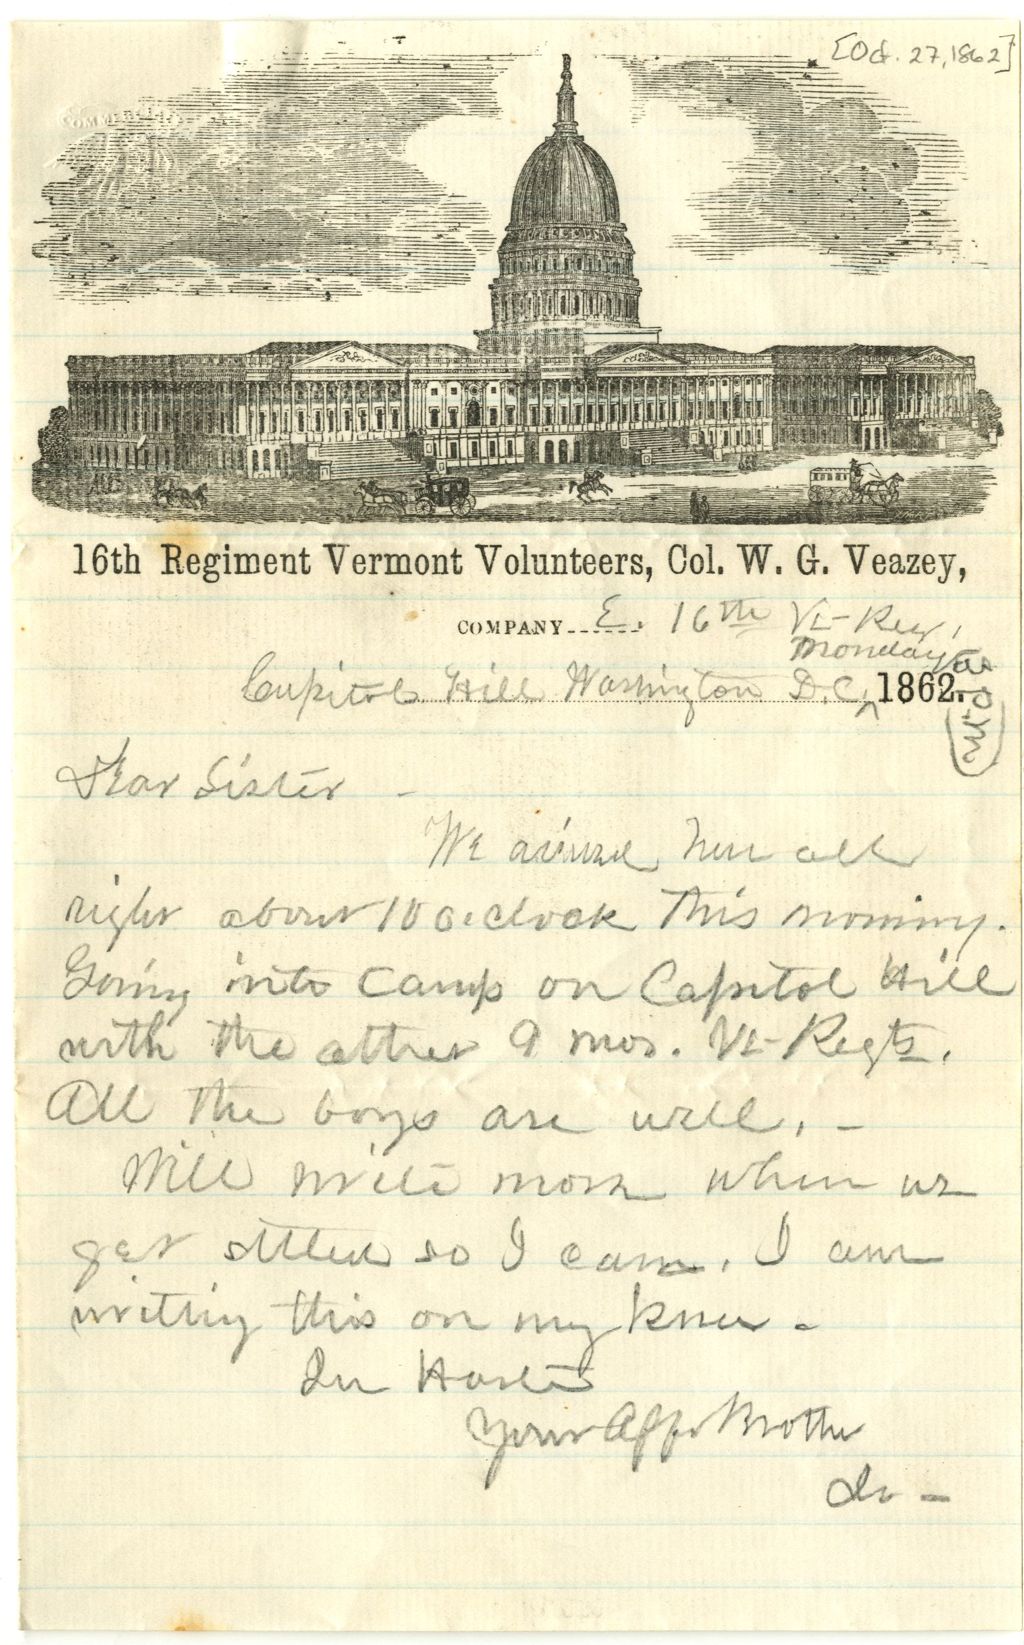 [Oct. 27, 1862]
16th Regiment Vermont Volunteers, Col. W. G. Veazey,
COMPANY E. 16th Vt Reg.
Monday
Capitol Hill Washington D.C. ^ 1862.
Dear Sister -
We arived here all
right about 10 o.clock this morning.
Going into camp on Capitol Hill
with the other 9 mos. Vt Regts.
All the boys are well. -
Will write more when we
get settled so I can. I am
writing this on my knee -
In Haste
Your Aff. Brother